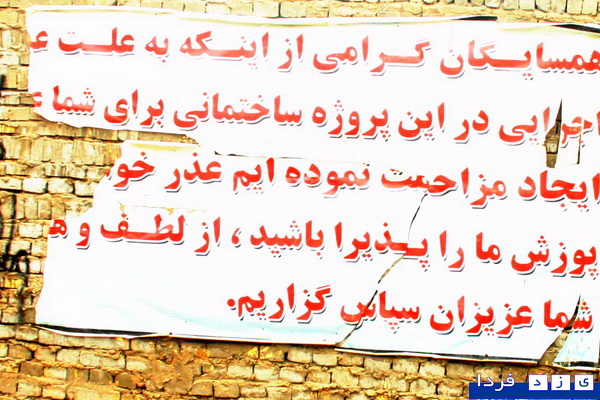 همسایگان گرامی از اینکه به علت
اجرایی در این پروژه ساختمانی برای شما
ایجاد مزاحمت نموده ایم عذر
پوزش ما را پذیرا باشید ، از لطف و
شما عزیزان سپاس گزاریم.
یزد فردا